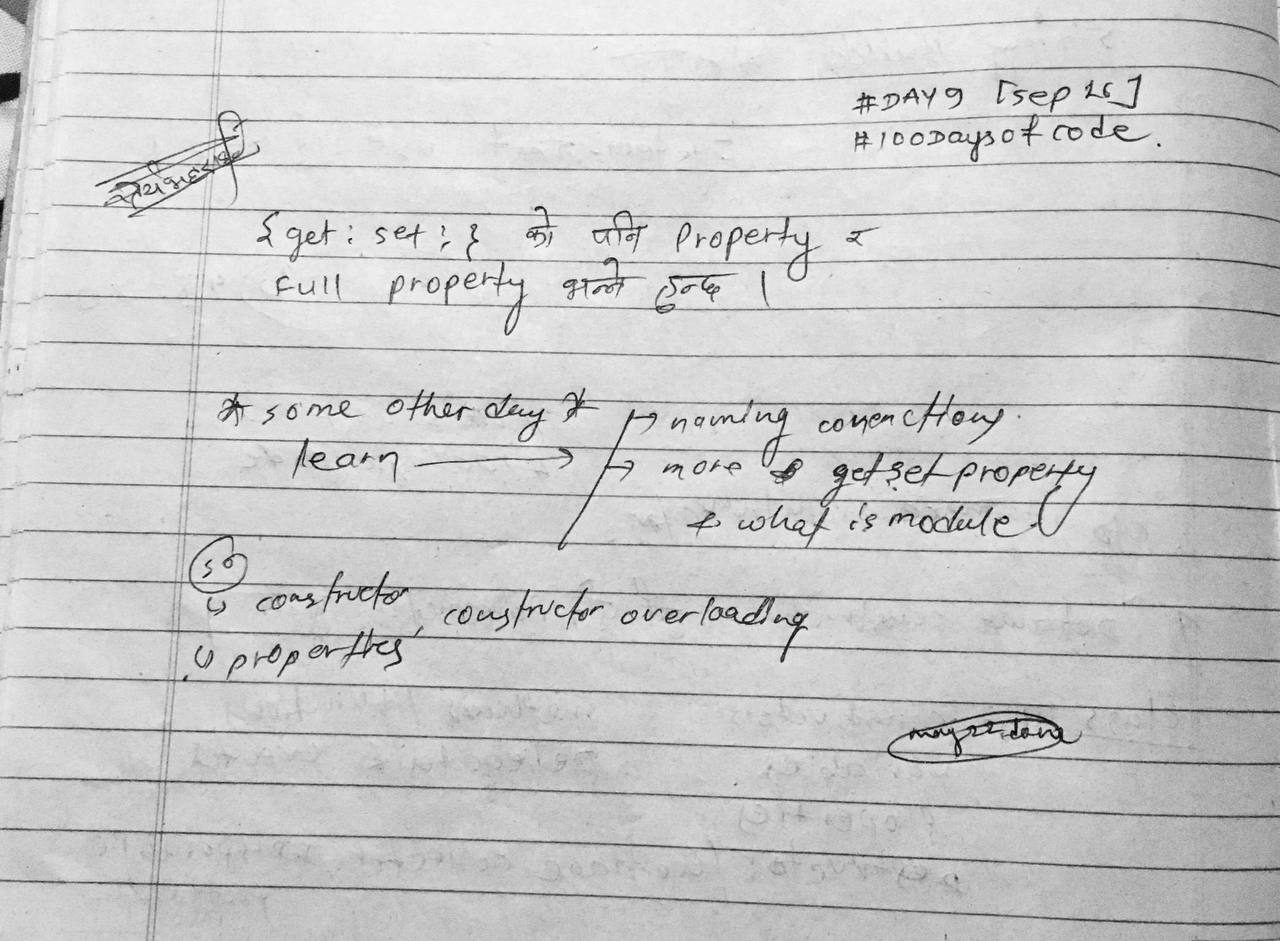 #DAY9 [sep 26]
#100DaysOfcode.
{get; set;} को पनि Property र
Full property भन्ने हुन्छ |
* some other day *
learn →
→ naming convenctions.
→ more getset property
+ what is module.
so
↳ constructor, constructor overloading
↳ properties
may 22 done